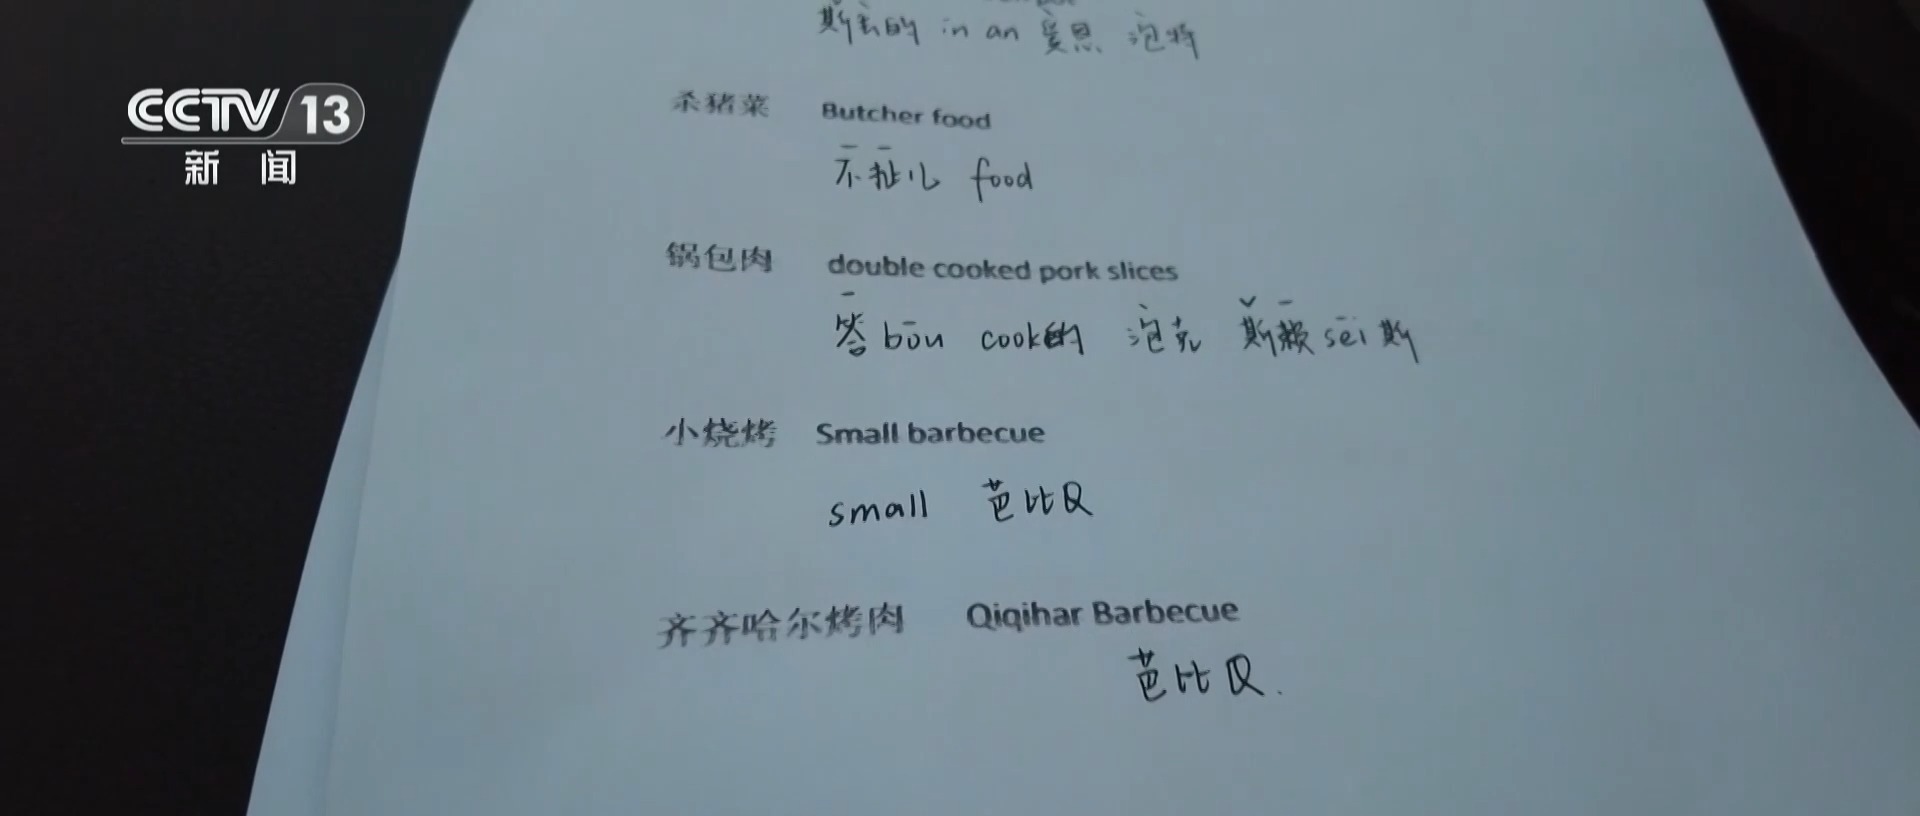 CCTV 13
新闻
斯丢的 in an 爱恩 泡特
杀猪菜 Butcher food
不扯儿 food
锅包肉 double cooked pork slices
答bōu cook的 泡克 斯赖sēi斯
小烧烤 Small barbecue
small 芭比Q
齐齐哈尔烤肉 Qiqihar Barbecue
芭比Q.